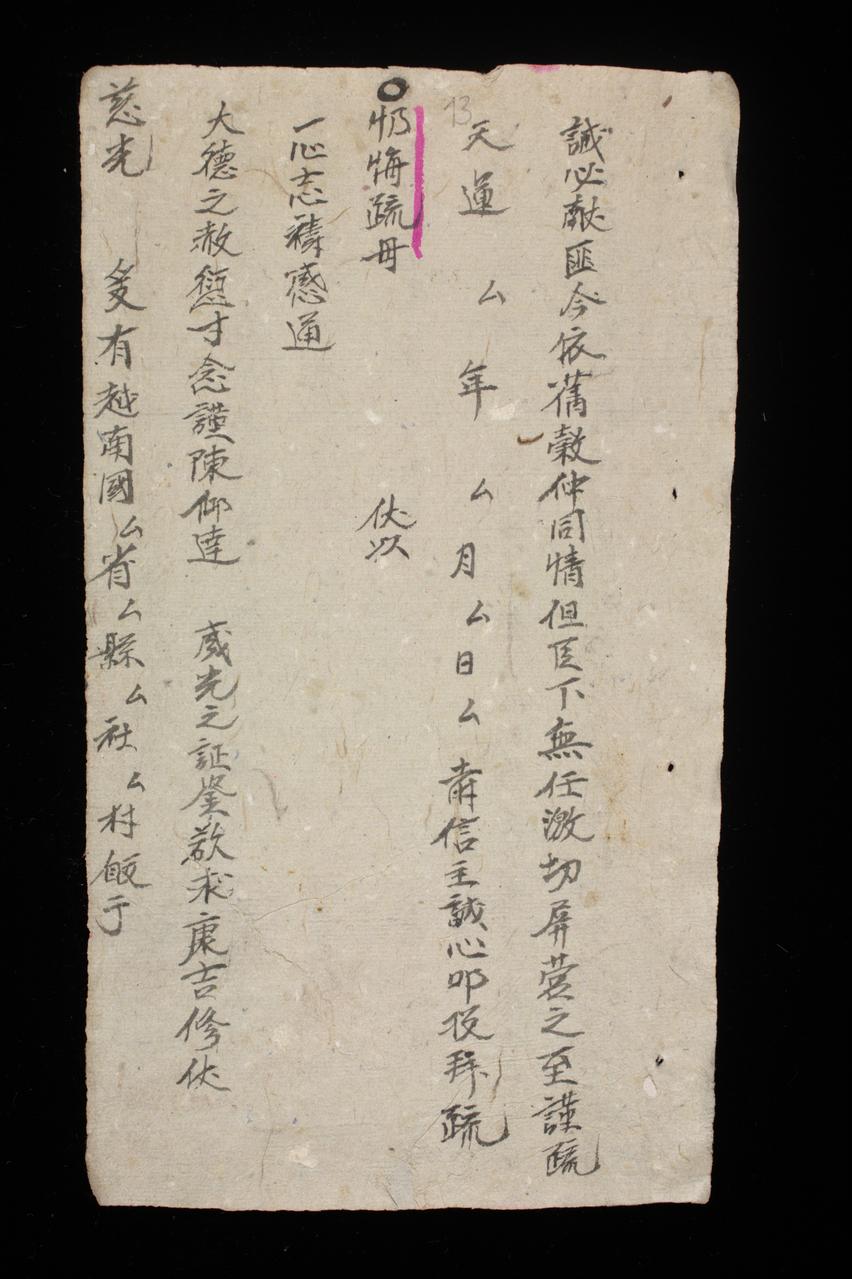 誠心献匪今依舊榖仲同情但臣下無任激切屏营之至謹疏
天運 厶 年 厶 月 厶 日 厶 肅信主誠心叩投拜疏
13
忉悔疏毋 伏以
一心志禱感通
大德之赦愆寸念謹陳仰達 威光之証鉴敬求康吉修伏
慈光 爰有越南國厶省厶縣厶社厶村皈于